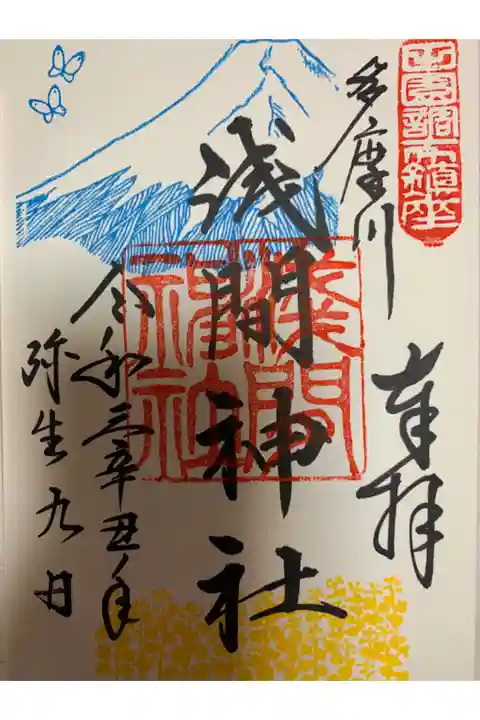 田園調布鎮座
奉拝
多摩川
浅間神社
浅間
神社
令和三辛丑年
弥生九日